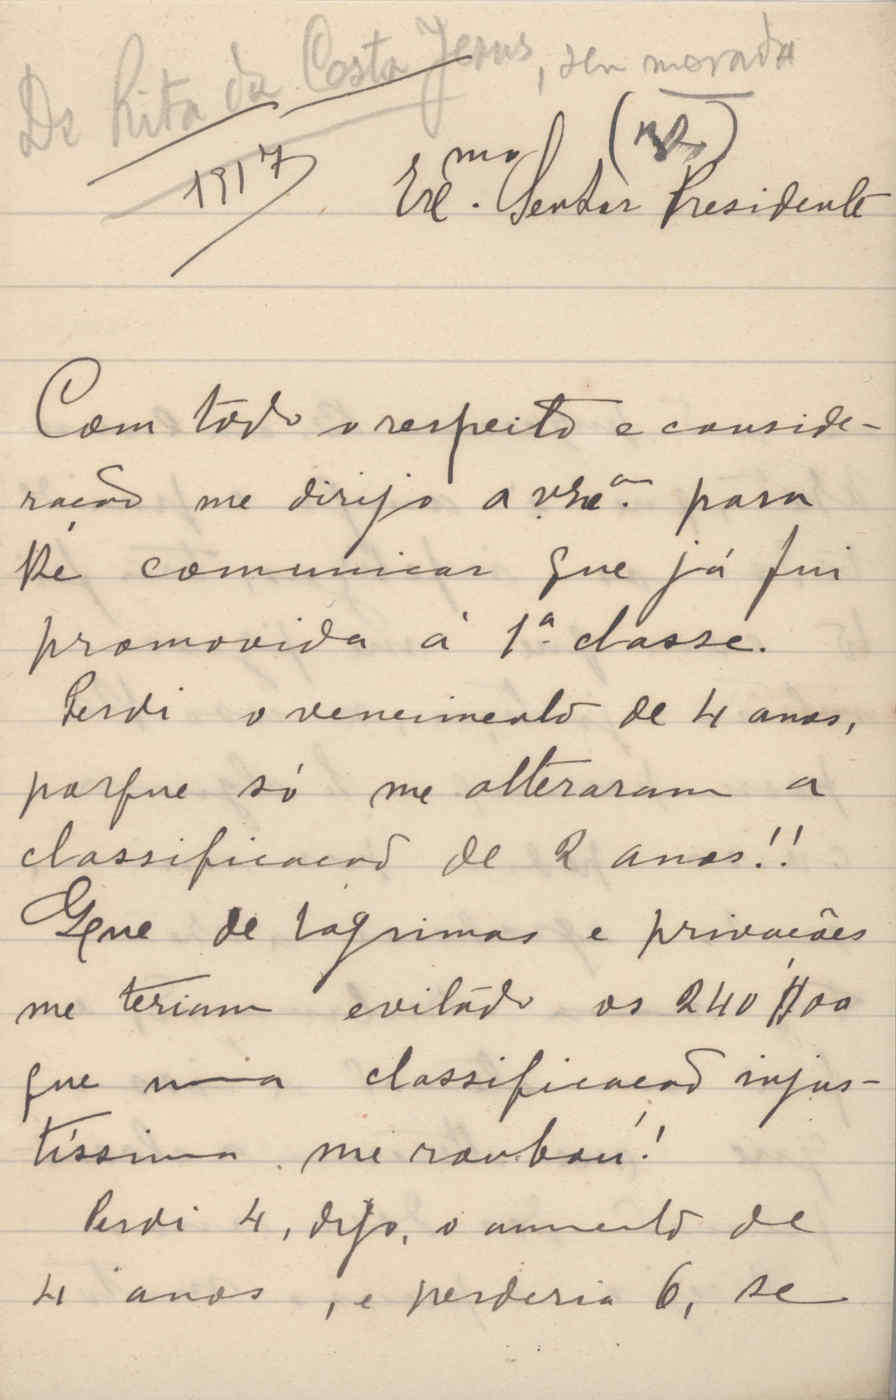 De Rita da Costa Jesus, sem morada
(NR)
1917
Exmo. Senhor Presidente
Com todo o respeito e conside-
ração me dirijo a v. Exa. para
lhe comunicar que já fui
promovida á 1ª classe.
Perdi o vencimento de 4 anos,
porque só me alteraram a
classificação de 2 anos!!
Que de lágrimas e privações
me teriam evitádo os 240$00
que uma classificação injus-
tíssima me roubou!!
Perdi 4, digo, o aumento de
4 anos, e perderia 6, se